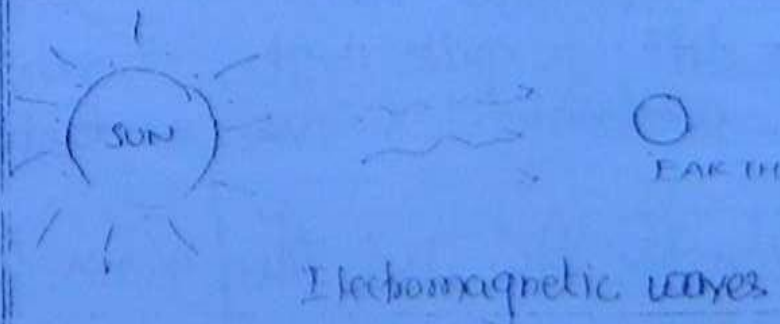 SUN
EARTH
Electromagnetic waves